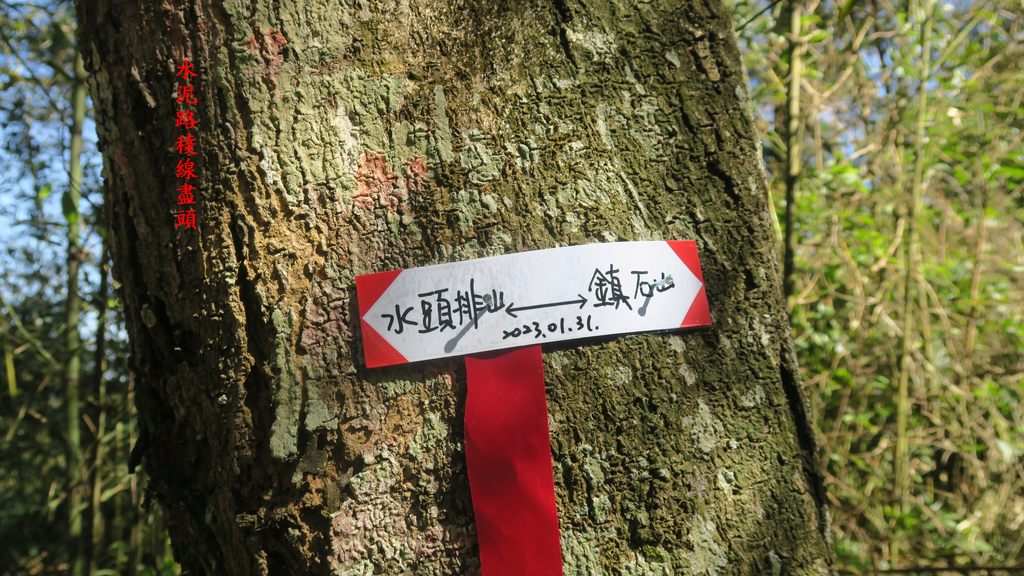 水泥路棧線盡頭
水頭排山 ←→ 鎮石山
2023.01.31.